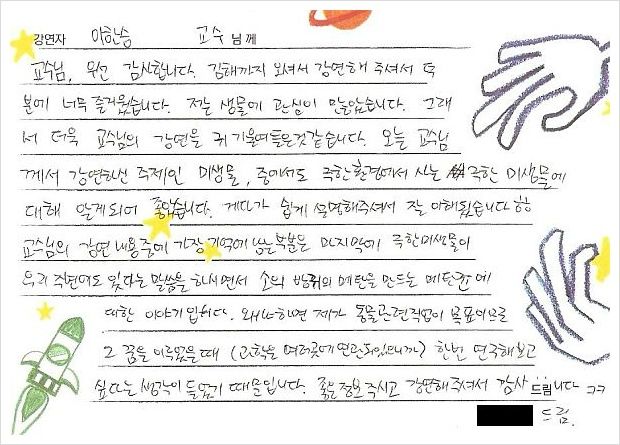 강연자 이한승 교수 님께
교수님, 우선 감사합니다. 김해까지 오셔서 강연해 주셔서 덕
분에 너무 즐거웠습니다. 저는 생물에 관심이 많았습니다. 그래
서 더욱 교수님의 강연을 귀 기울여들은것같습니다. 오늘 교수님
께서 강연하신 주제인 미생물, 중에서도 극한환경에서 사는 극한 미생물에
대해 알게되어 좋았습니다. 게다가 쉽게 설명해주셔서 잘 이해됬습니다 항
교수님의 강연 내용중에 가장 기억에 남는부분은 마지막에 극한미생물이
우리 주변에도 있다는 말씀을 하시면서 소의 방귀의 메탄을 만드는 메탄균에
대한 이야기 입니다. 왜냐하면 제가 동물관련직업이 목표이므로
그 꿈을 이루었을때 (과학은 여러곳에 연관되있으니까) 한번 연구해보고
싶다는 생각이 들었기 때문입니다. 좋은정보 주시고 강연해주셔서 감사 드립니다 ㅋㅋ
드림.